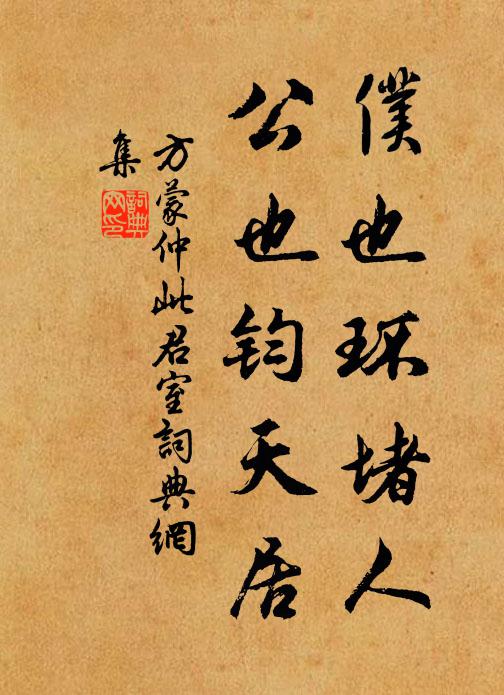 僕也环堵人
公也钧天居
方蒙仲此君室詞典網
集
詞典
网印